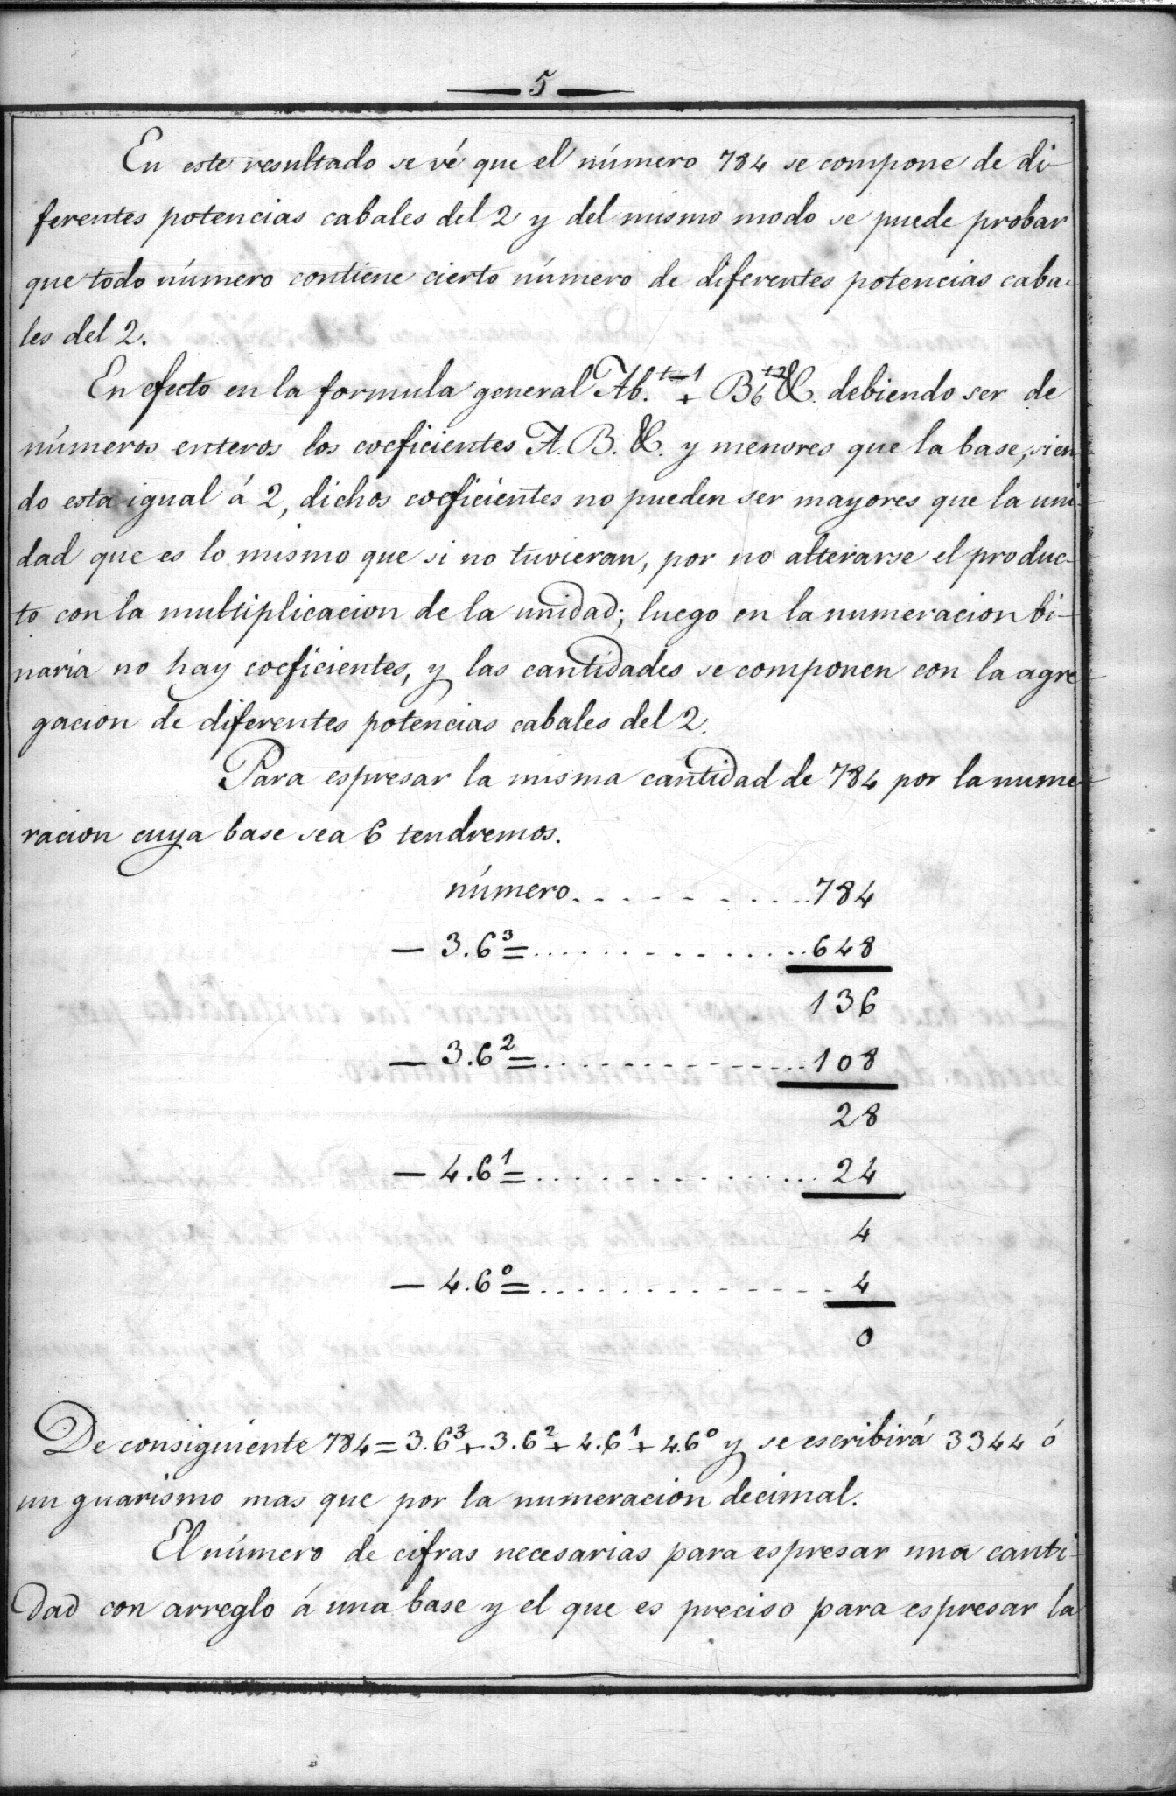 5
En este resultado se vé que el número 784 se compone de di-
ferentes potencias cabales del 2 y del mismo modo se puede probar
que todo número contiene cierto número de diferentes potencias caba-
les del 2.
En efecto en la formula general Ab. + B &. debiendo ser de
números enteros los coeficientes A. B. &. y menores que la base, sien-
do esta igual á 2, dichos coeficientes no pueden ser mayores que la uni-
dad que es lo mismo que si no tuvieran, por no alterarse el produc-
to con la multiplicacion de la unidad; luego en la numeracion bi-
naria no hay coeficientes, y las cantidades se componen con la agre-
gacion de diferentes potencias cabales del 2.
Para espresar la misma cantidad de 784 por la nume-
racion cuya base sea 6 tendremos.
número. . . . . . . . . 784
— 3.6³ = . . . . . . . . . 648
136
— 3.6² = . . . . . . . . . 108
28
— 4.6¹ = . . . . . . . . . 24
4
— 4.6⁰ = . . . . . . . . . 4
0
De consiguiente 784 = 3.6³ + 3.6² + 4.6¹ + 4.6⁰ y se escribirá 3344 ó
un guarismo mas que por la numeracion decimal.
El número de cifras necesarias para espresar una canti-
dad con arreglo á una base y el que es preciso para espresar la